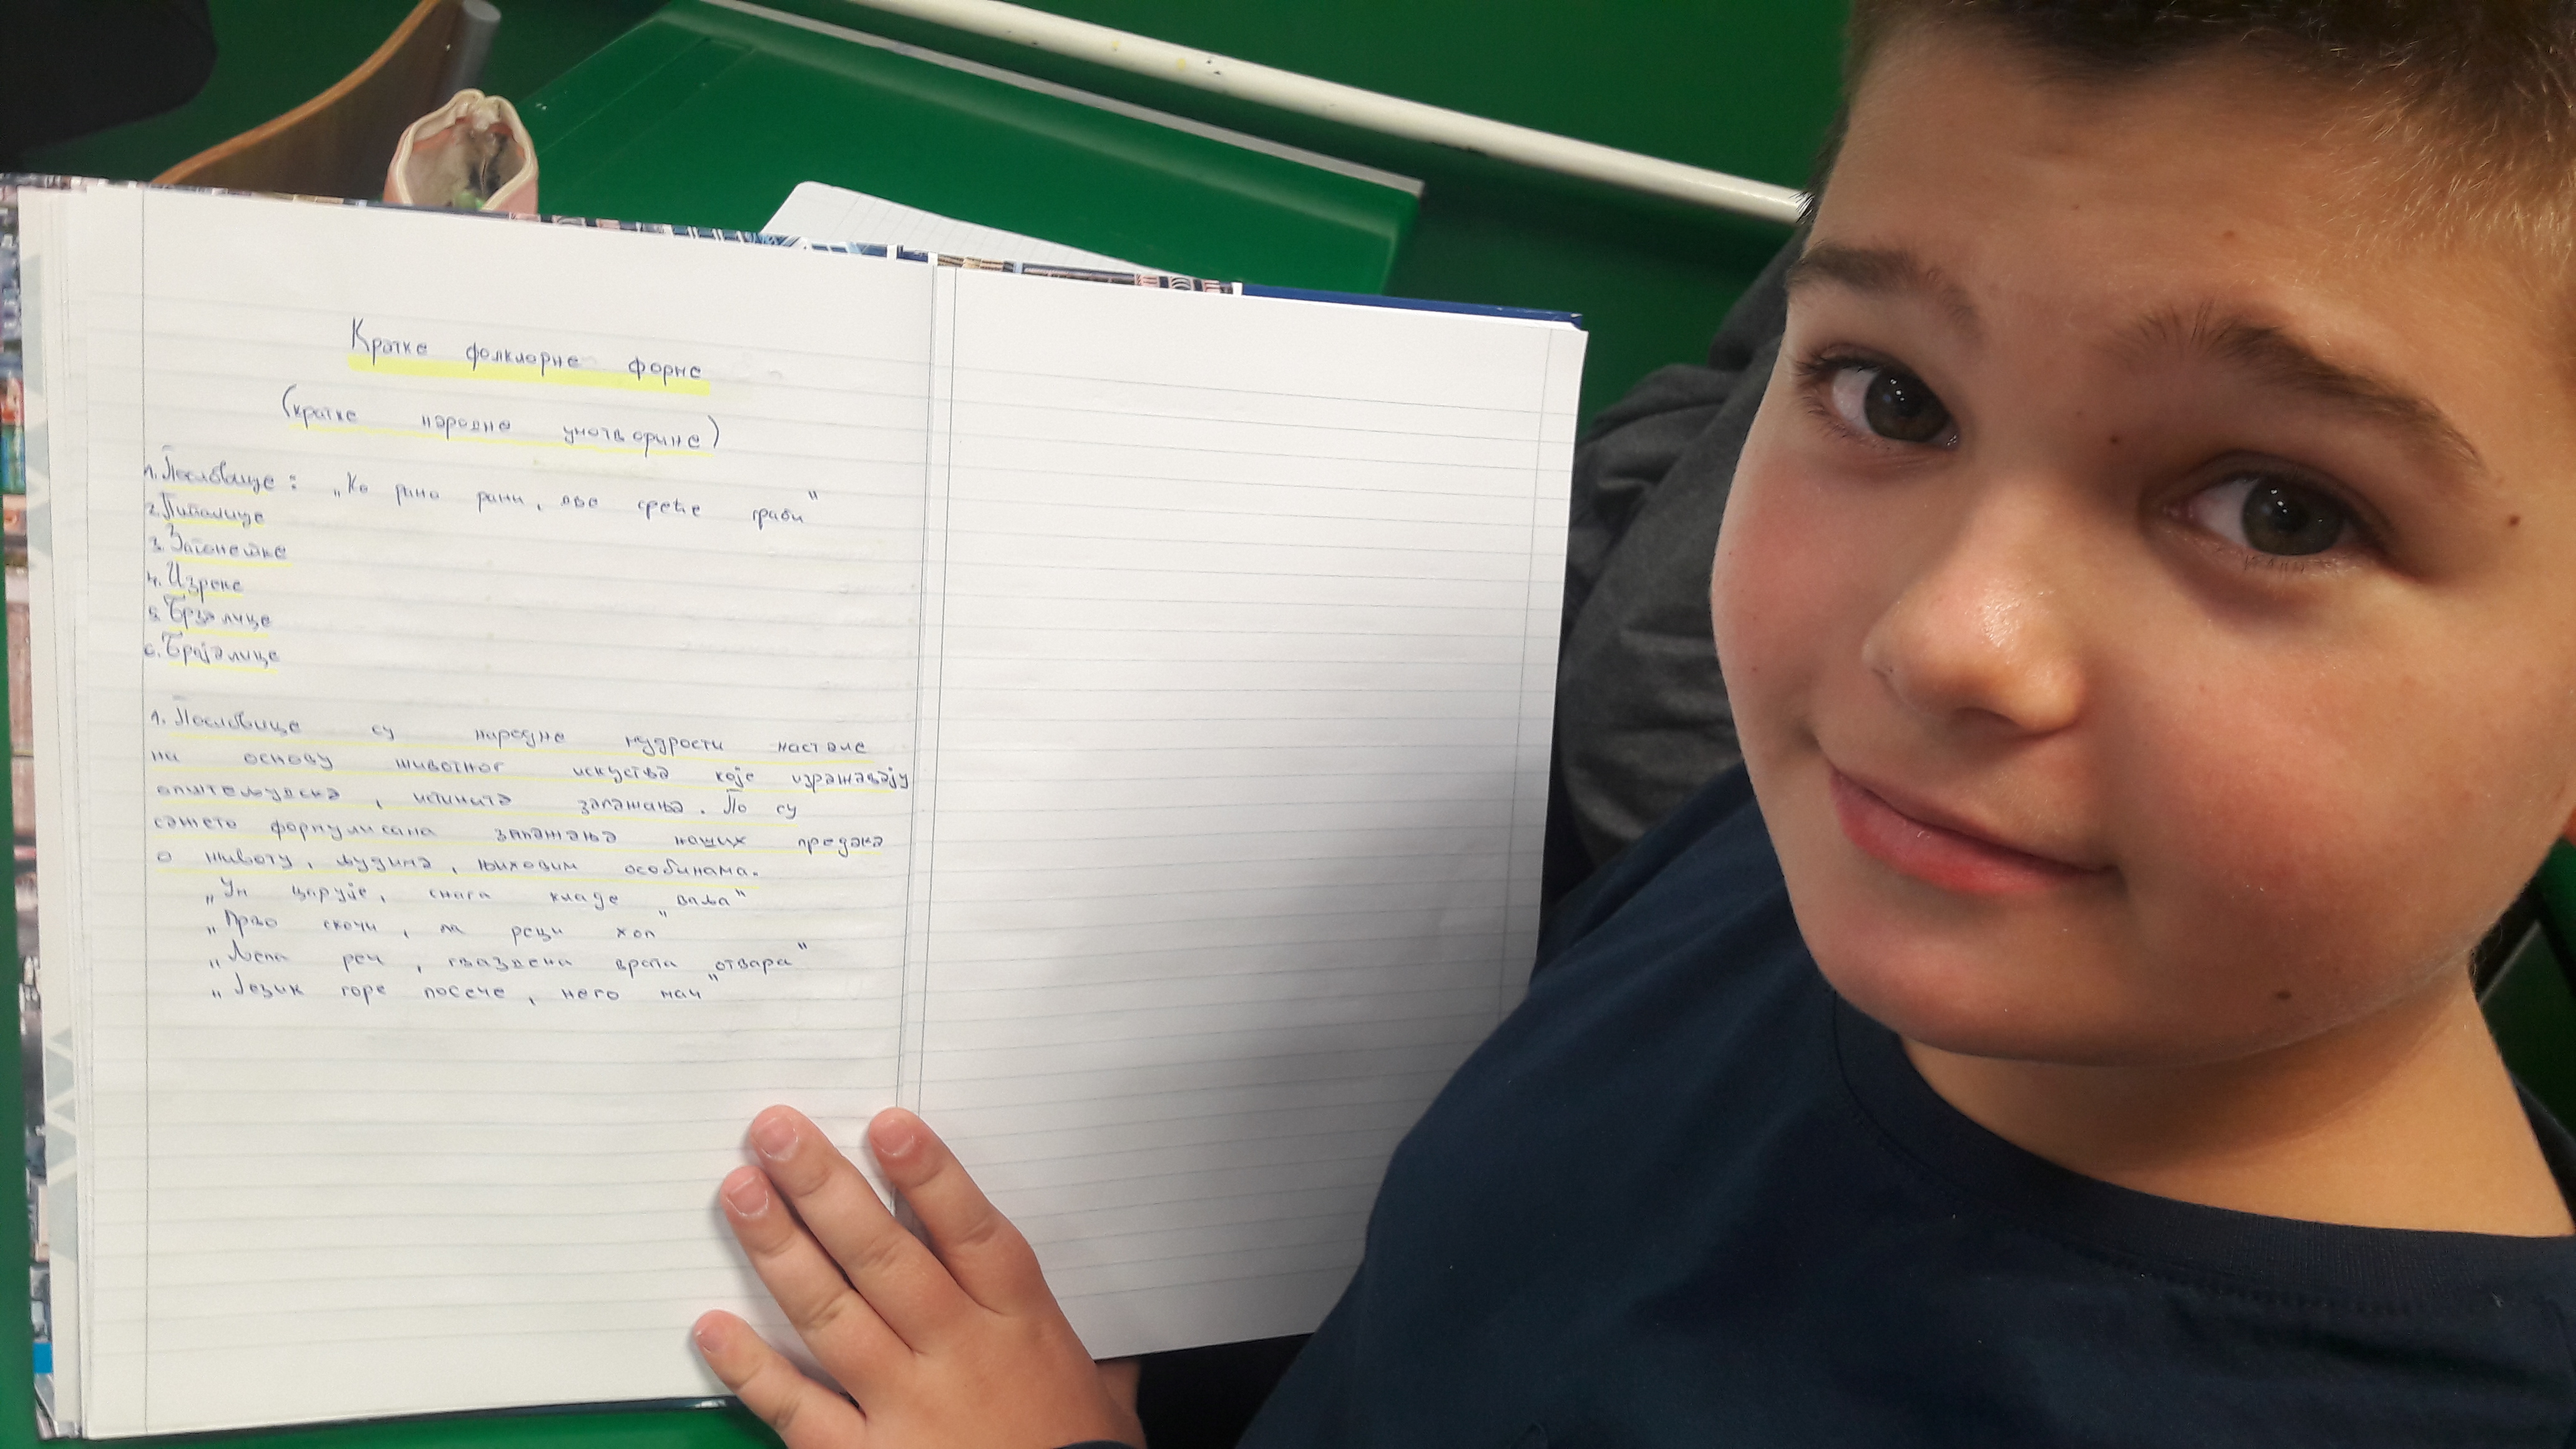 Кратке фолклорне форме
(кратке народне умотворине)
1. Пословице: „Ко рано рани, две среће граби"
2. Питалице
3. Загонетке
4. Изреке
5. Брзалице
6. Бројалице
1. Пословице су народне мудрости настале
на основу животног искуства које изражавају
општељудска, истинита запажања. То су
сажето формулисана запажања наших предака
о животу, људима, њиховим особинама.
„Ум царује, снага кладе ваља"
„Прво скочи, па реци хоп"
„Лепа реч, гваздена врата отвара"
„Језик горе посече, него мач"